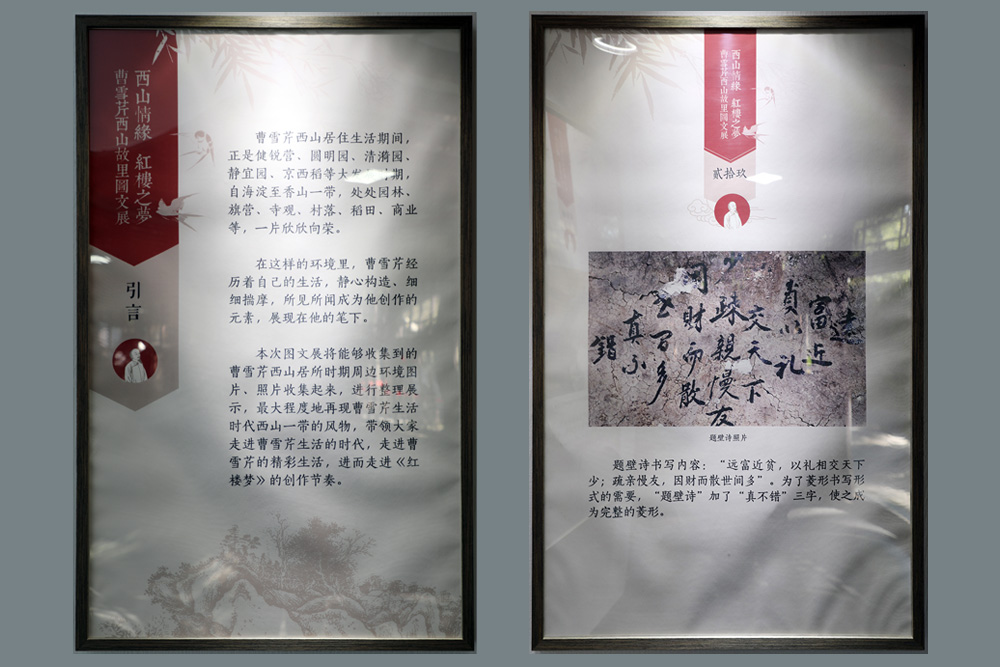 西山情緣 紅樓之夢
曹雪芹西山故里圖文展
引言
曹雪芹西山居住生活期间，
正是健锐营、圆明园、清漪园、
静宜园、京西稻等大发 期，
自海淀至香山一带，处处园林、
旗营、寺观、村落、稻田、商业
等，一片欣欣向荣。
在这样的环境里，曹雪芹经
历着自己的生活，静心构造、细
细揣摩，所见所闻成为他创作的
元素，展现在他的笔下。
本次图文展将能够收集到的
曹雪芹西山居所时期周边环境图
片、照片收集起来，进行整理展
示，最大程度地再现曹雪芹生活
时代西山一带的风物，带领大家
走进曹雪芹生活的时代，走进曹
雪芹的精彩生活，进而走进《红
楼梦》的创作节奏。
西山情緣 紅樓之夢
曹雪芹西山故里圖文展
貳拾玖
遠
富近
以礼
交天下
少
疎親慢友
財而散
多
真不
錯
题壁诗照片
题壁诗书写内容：“远富近贫，以礼相交天下
少；疏亲慢友，因财而散世间多”。为了菱形书写形
式的需要，“题壁诗”加了“真不错”三字，使之成
为完整的菱形。